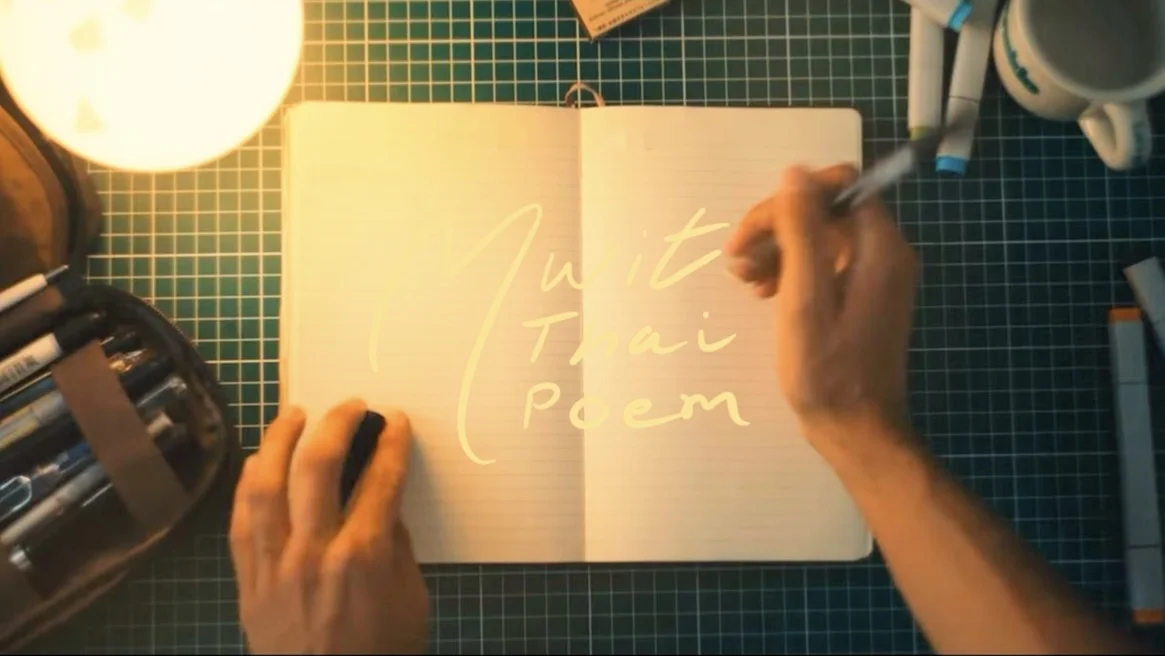 Mwit
Thai
Poem